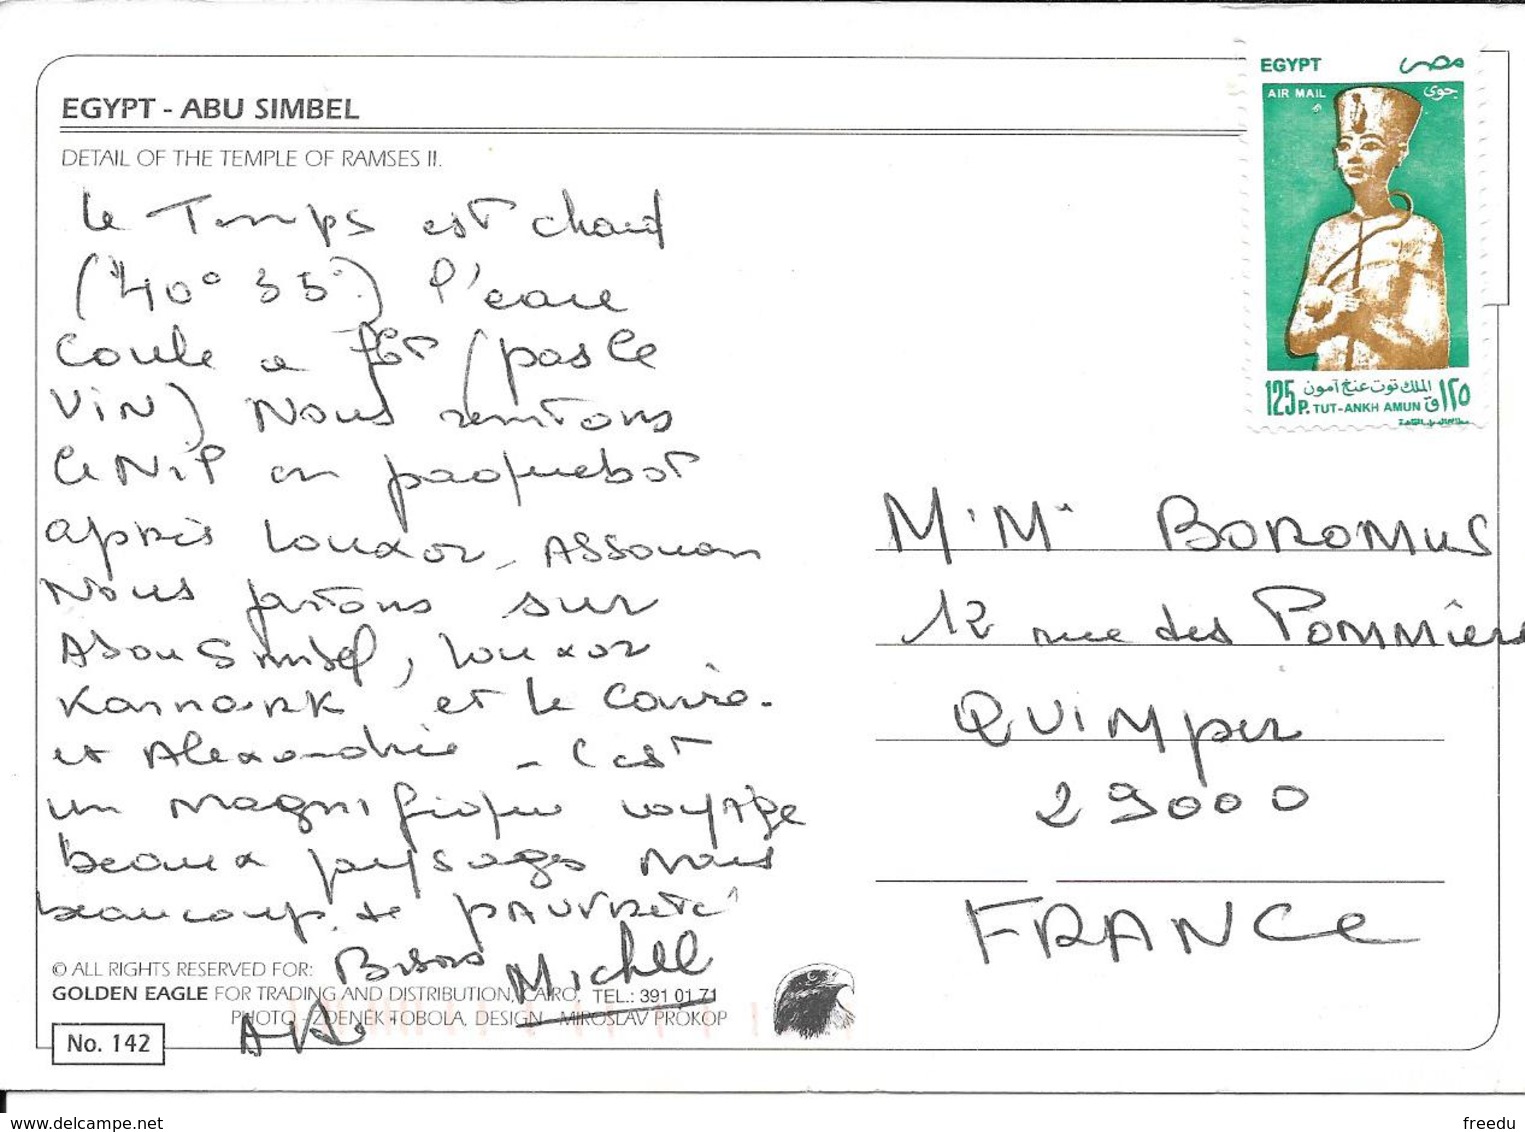 EGYPT - ABU SIMBEL
DETAIL OF THE TEMPLE OF RAMSES II.
Le Temps est chaud
(40° 35°) l'eau
coule a flot (pas le
vin) Nous remontons
le Nil en paquebot
après Louxor - Assouan
Nous partons sur
Abou Simbel, Louxor
Karnark et le Caire.
et Alexandrie - C'est
un magnifique voyage
beaux paysages mais
beaucoup de pauvreté
Bisous Michel
© ALL RIGHTS RESERVED FOR:
GOLDEN EAGLE FOR TRADING AND DISTRIBUTION, CAIRO, TEL.: 391 01 71
PHOTO - ZDENEK TOBOLA, DESIGN - MIROSLAV PROKOP
No. 142
EGYPT مصر
AIR MAIL جوى
125 P. الملك توت عنخ آمون ١٢٥ ق
TUT-ANKH AMUN
M. Me BOROMUS
12 rue des Pommiers
QUIMper
29000
FRANCe
www.delcampe.net
freedu